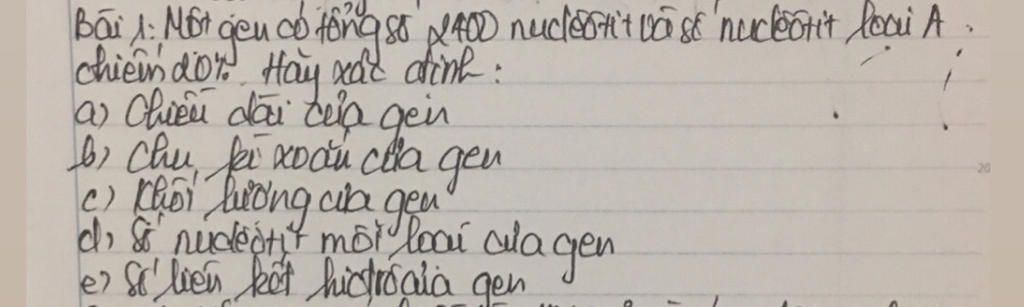 Bài 1: Một gen có tổng số 2400 nuclêôtit và số nuclêôtit loại A
chiếm 20%. Hãy xác định:
a) Chiều dài của gen
b) Chu kì xoắn của gen
c) Khối lượng của gen
d) Số nuclêôtit mỗi loại của gen
e) Số liên kết hiđrô của gen